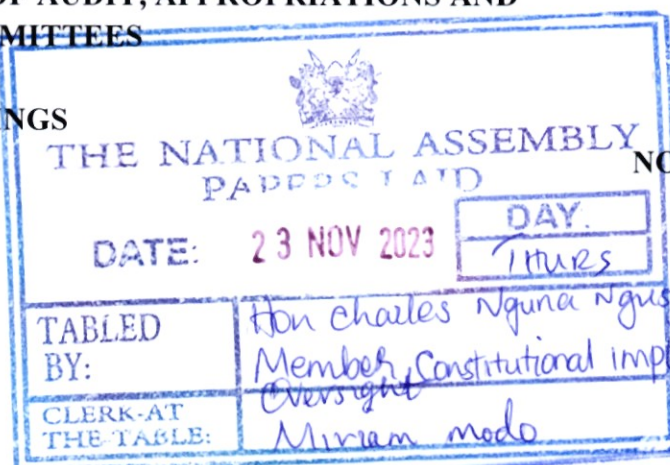 OF AUDIT, APPROPRIATIONS AND
MITTEES
NGS
THE NATIONAL ASSEMBLY
NO
PAPERS LAID
DATE: 23 NOV 2023
DAY.
THURS
TABLED BY:
Hon Charles Nguna Ngus
Member, Constitutional impl
Oversight
CLERK-AT THE-TABLE:
Miriam modo